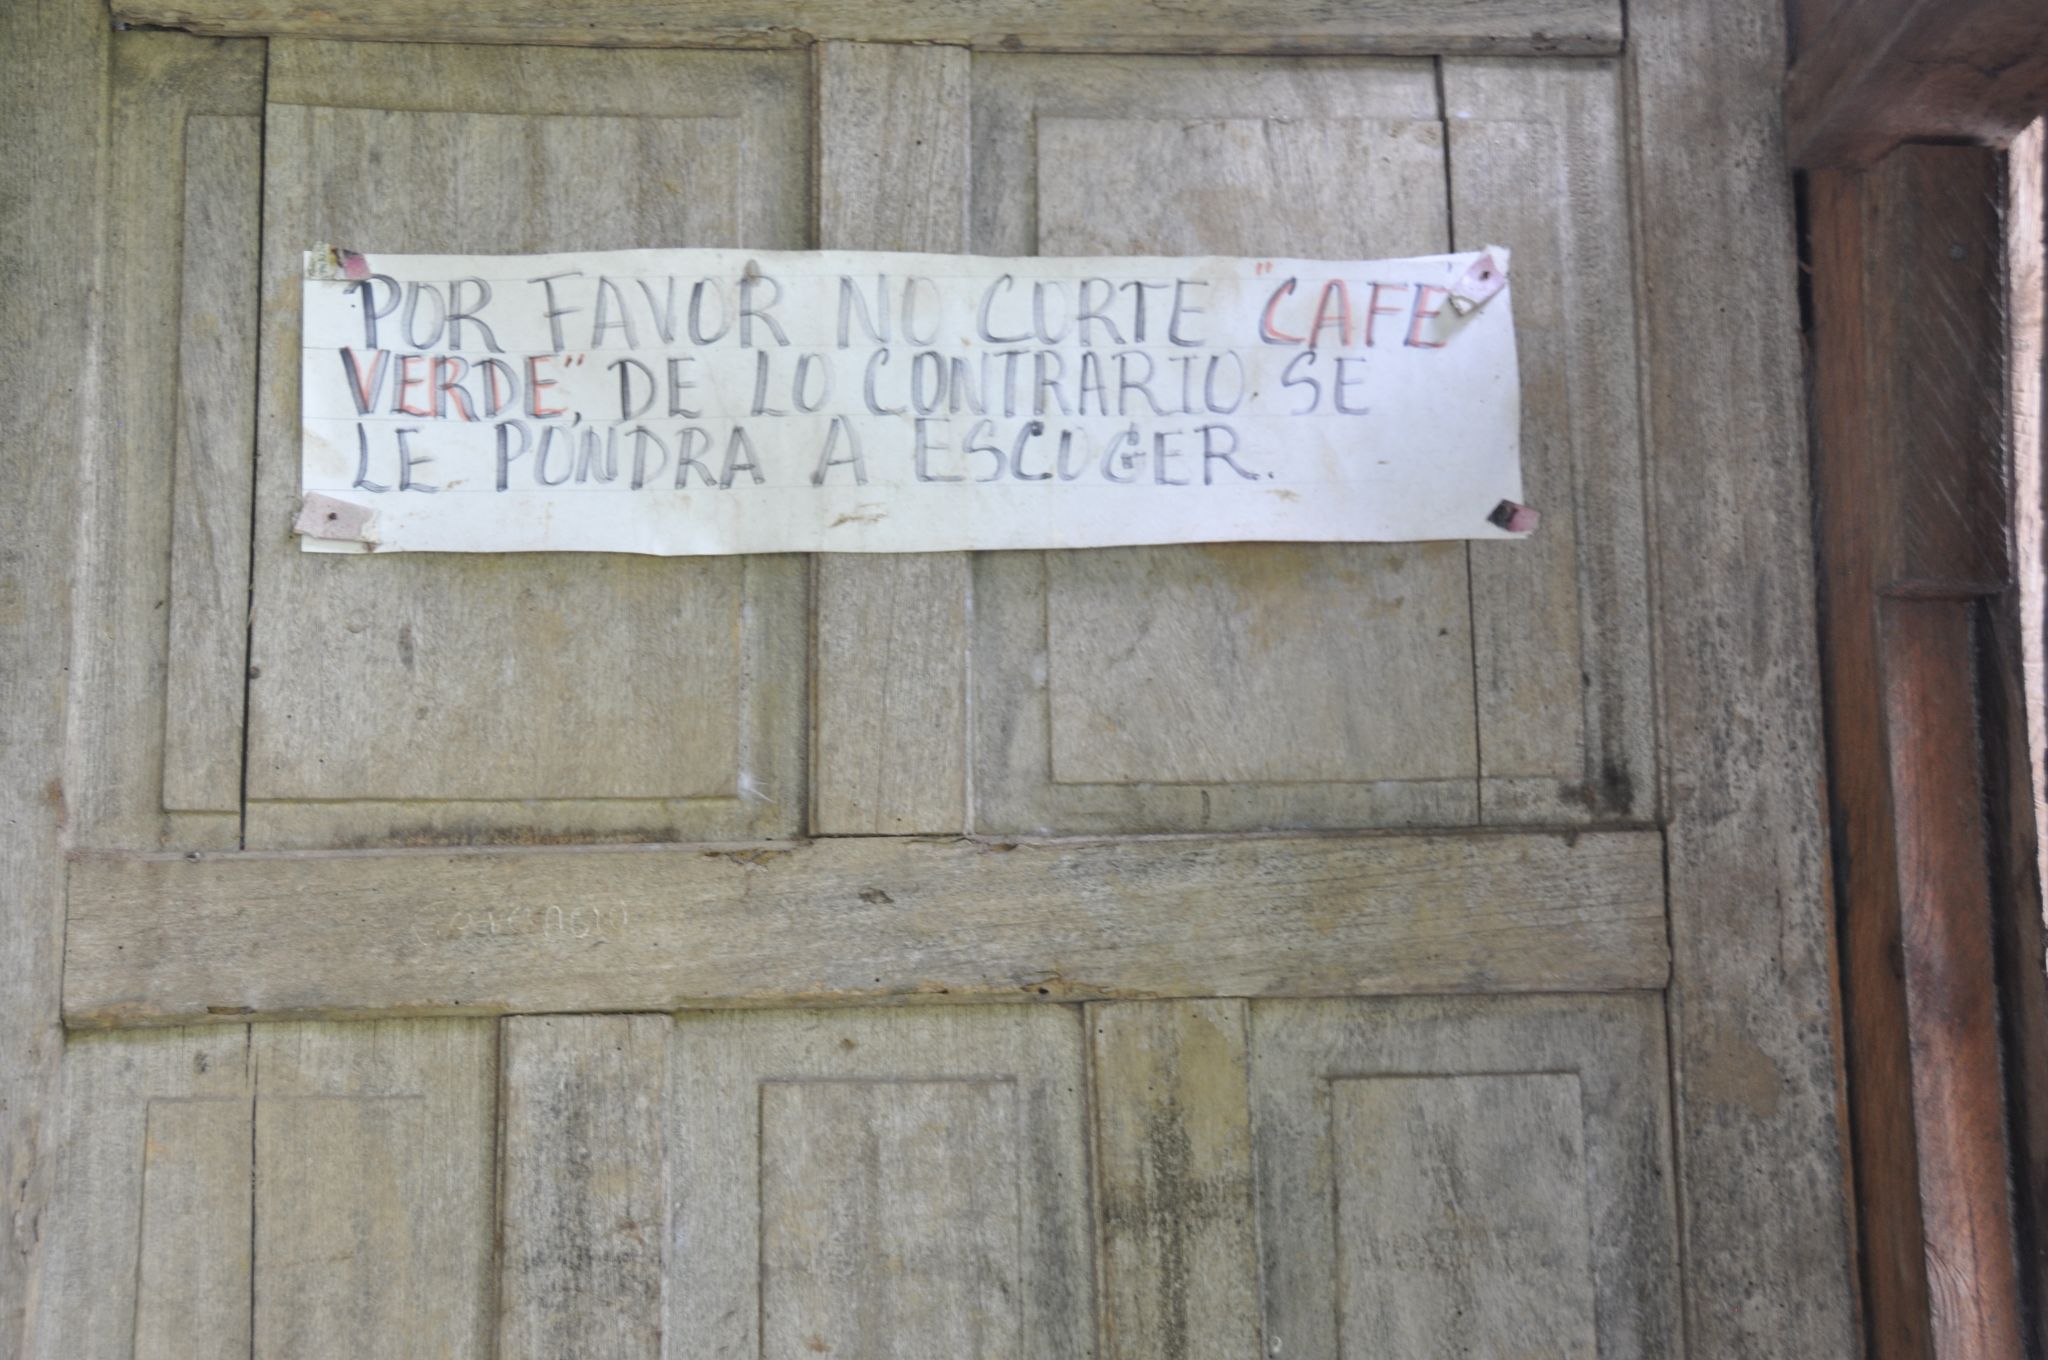 "POR FAVOR NO CORTE "CAFE
VERDE", DE LO CONTRARIO, SE
LE PONDRA A ESCOGER.